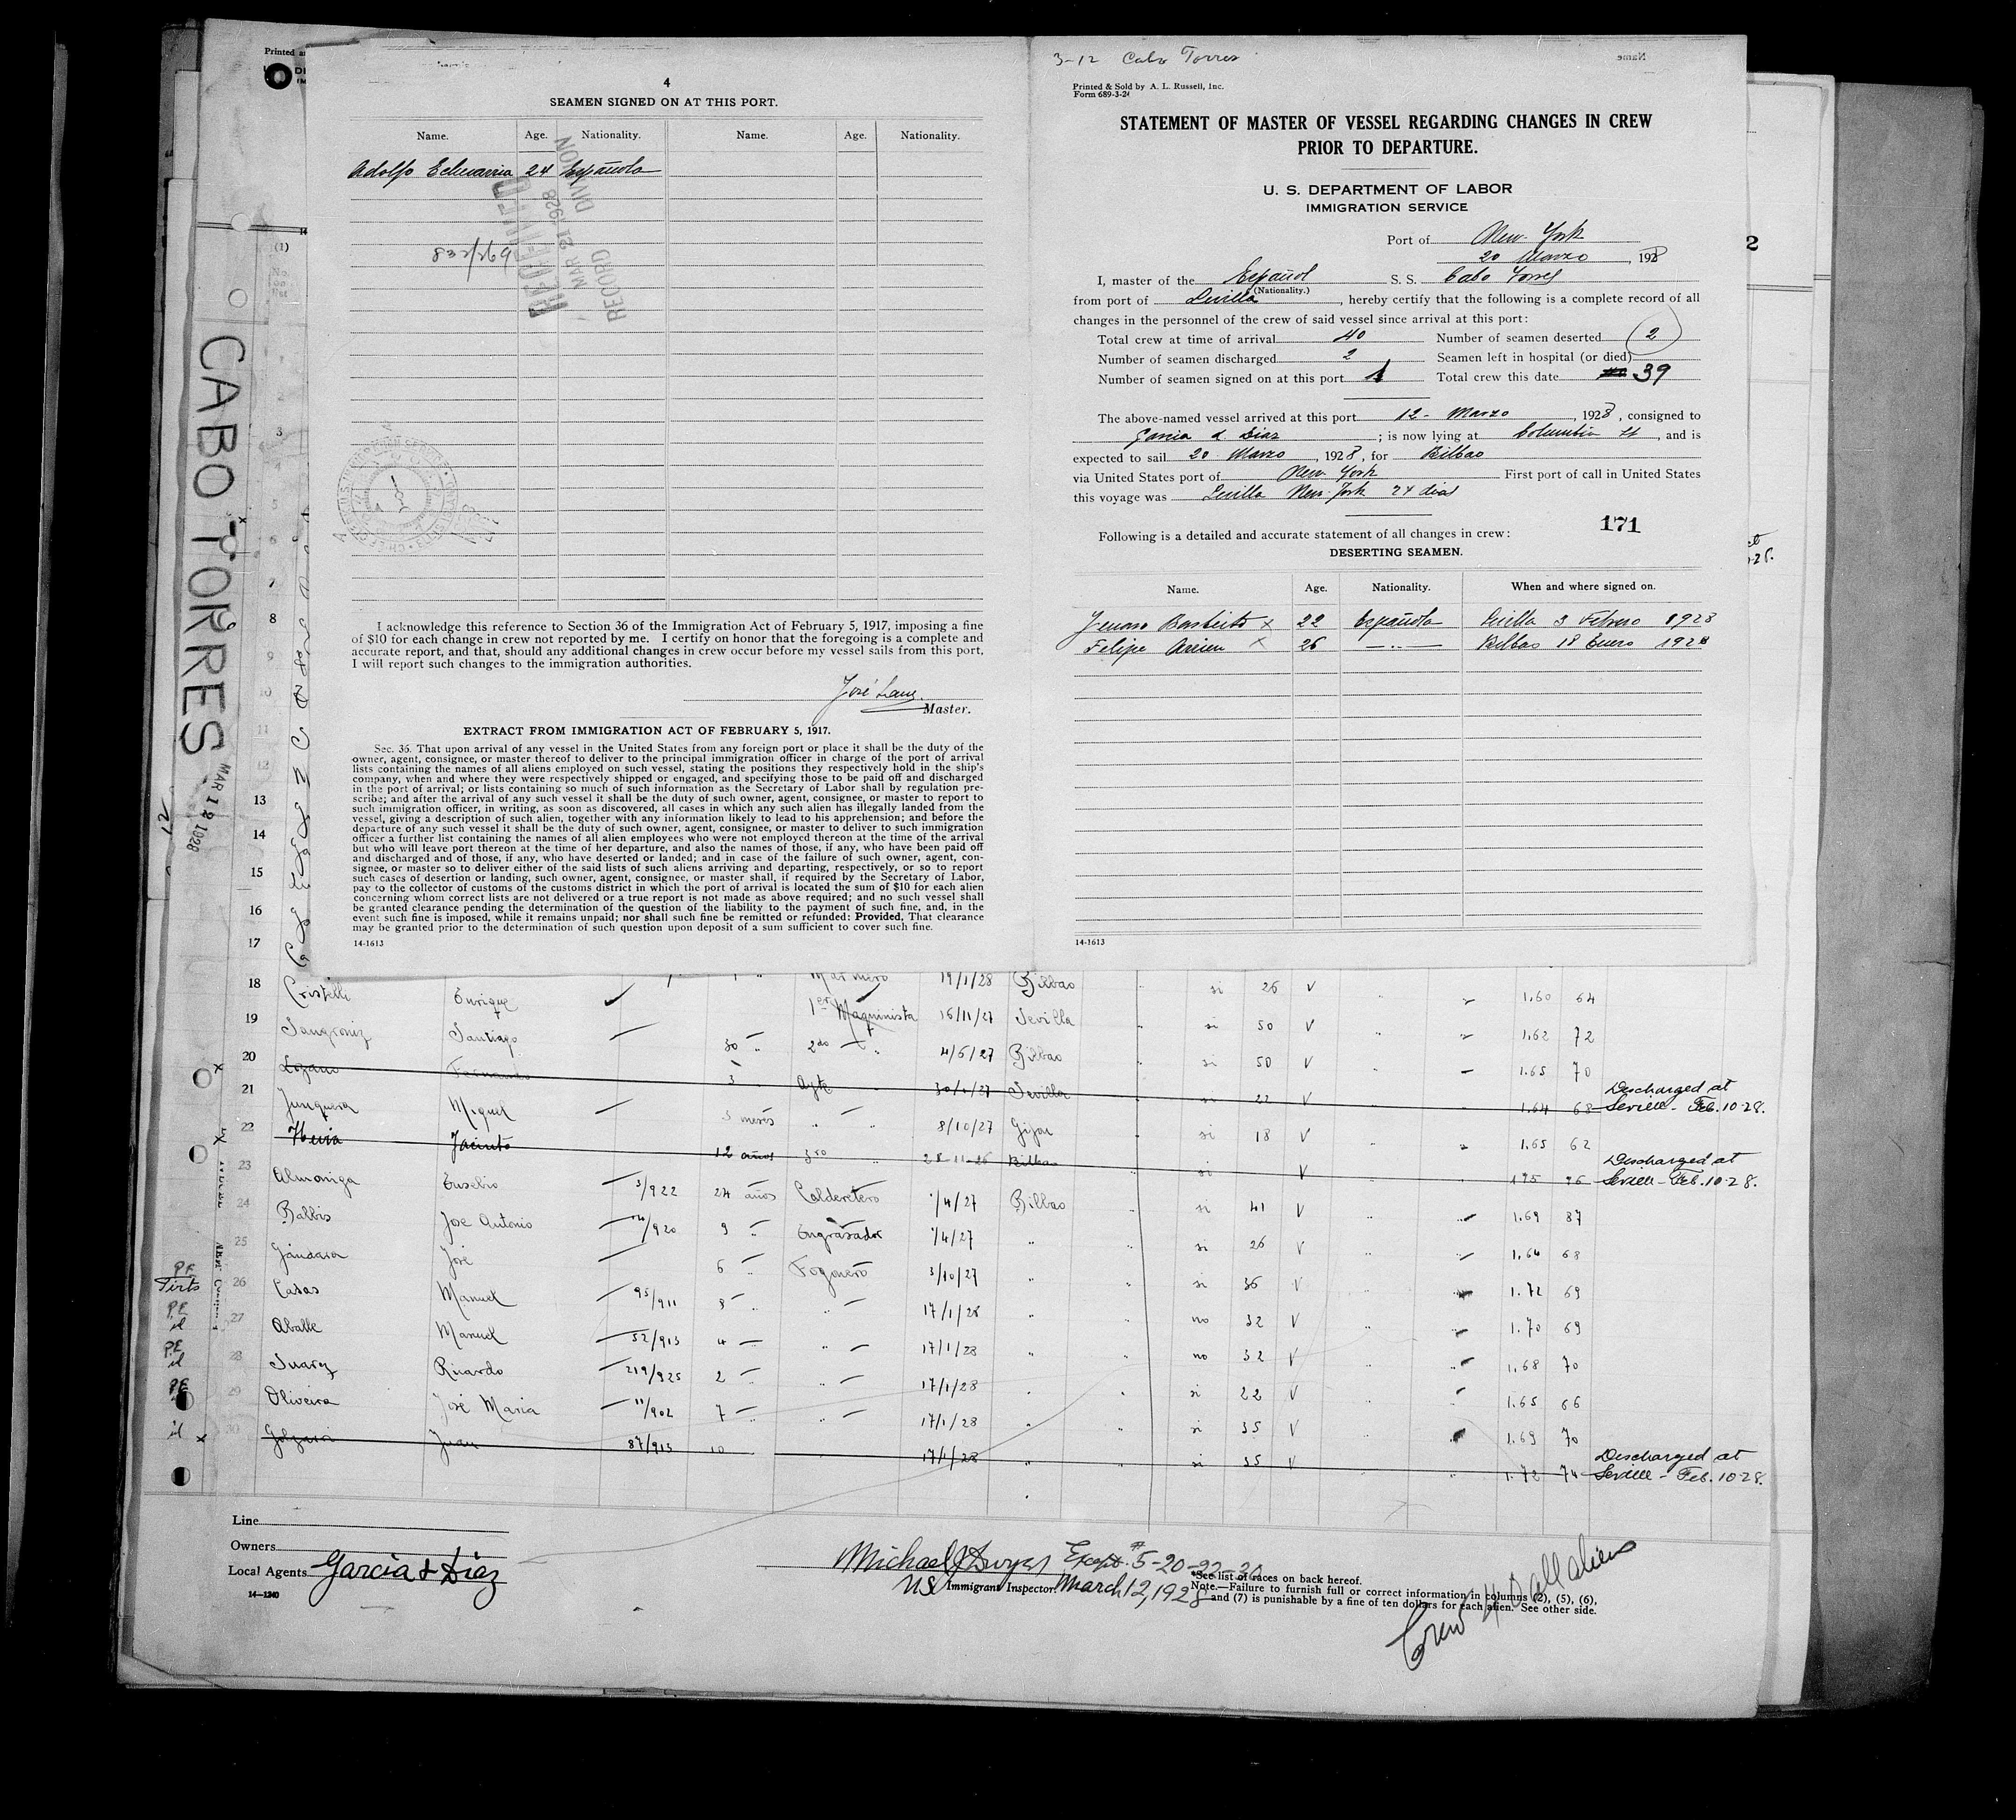 4
SEAMEN SIGNED ON AT THIS PORT.
Name. Age. Nationality. Name. Age. Nationality.
Adolfo Echevarria 24 Española
832/269
RECEIVED
MAR 21 1928
RECORD DIVISION
I acknowledge this reference to Section 36 of the Immigration Act of February 5, 1917, imposing a fine
of $10 for each change in crew not reported by me. I certify on honor that the foregoing is a complete and
accurate report, and that, should any additional changes in crew occur before my vessel sails from this port,
I will report such changes to the immigration authorities.
José
Master.
EXTRACT FROM IMMIGRATION ACT OF FEBRUARY 5, 1917.
Sec. 36. That upon arrival of any vessel in the United States from any foreign port or place it shall be the duty of the
owner, agent, consignee, or master thereof to deliver to the principal immigration officer in charge of the port of arrival
lists containing the names of all aliens employed on such vessel, stating the positions they respectively hold in the ship's
company, when and where they were respectively shipped or engaged, and specifying those to be paid off and discharged
in the port of arrival; or lists containing so much of such information as the Secretary of Labor shall by regulation pre-
scribe; and after the arrival of any such vessel it shall be the duty of such owner, agent, consignee, or master to report to
such immigration officer, in writing, as soon as discovered, all cases in which any such alien has illegally landed from the
vessel, giving a description of such alien, together with any information likely to lead to his apprehension; and before the
departure of any such vessel it shall be the duty of such owner, agent, consignee, or master to deliver to such immigration
officer a further list containing the names of all alien employees who were not employed thereon at the time of the arrival
but who will leave port thereon at the time of her departure, and also the names of those, if any, who have been paid off
and discharged and of those, if any, who have deserted or landed; and in case of the failure of such owner, agent, con-
signee, or master so to deliver either of the said lists of such aliens arriving and departing, respectively, or so to report
such cases of desertion or landing, such owner, agent, consignee, or master shall, if required by the Secretary of Labor,
pay to the collector of customs of the customs district in which the port of arrival is located the sum of $10 for each alien
concerning whom correct lists are not delivered or a true report is not made as above required; and no such vessel shall
be granted clearance pending the determination of the question of the liability to the payment of such fine, and, in the
event such fine is imposed, while it remains unpaid; nor shall such fine be remitted or refunded: Provided, That clearance
may be granted prior to the determination of such question upon deposit of a sum sufficient to cover such fine.
14-1613
3-12 Cabo Torres
Printed & Sold by A. L. Russell, Inc.
Form 689-3-24
STATEMENT OF MASTER OF VESSEL REGARDING CHANGES IN CREW
PRIOR TO DEPARTURE.
U. S. DEPARTMENT OF LABOR
IMMIGRATION SERVICE
Port of New York
20 Marzo, 1928
I, master of the Español S. S. Cabo Torres
(Nationality.)
from port of Sevilla, hereby certify that the following is a complete record of all
changes in the personnel of the crew of said vessel since arrival at this port:
Total crew at time of arrival 40 Number of seamen deserted 2
Number of seamen discharged 2 Seamen left in hospital (or died)
Number of seamen signed on at this port 1 Total crew this date 39
The above-named vessel arrived at this port 12- Marzo, 1928, consigned to
Garcia & Diaz; is now lying at Columbia St, and is
expected to sail 20 Marzo, 1928, for Bilbao
via United States port of New York First port of call in United States
this voyage was Sevilla New-York 24 dias
171
Following is a detailed and accurate statement of all changes in crew:
DESERTING SEAMEN.
Name. Age. Nationality. When and where signed on.
x 22 Española Sevilla 9 Febrero 1928
Felipe x 26 —..— Bilbao 18 Enero 1928
14-1613
CABO TORRES
MAR 12 1928
12
2
(1)
3
8
9
10
11
12
13
14
15
16
17
Marinero 19/1/28 Bilbao si 26 V
18 Cristelli Enrique 1er Maquinista 16/11/27 Sevilla si 50 V 1.60 64
19 Sangroniz Santiago 30 2do 4/5/27 Bilbao si 50 V 1.62 72
20 Lozano Fernando 3 Ayte 30/1/27 Sevilla si 22 V 1.65 70
21 Junquera Miguel 3 meses 8/10/27 Gijon si 18 V 1.64 68 Discharged at
Seville - Feb. 10-28.
22 Jacinto 12 años 3ro 28-11-26 Bilbao si V 1.65 62
23 Almoniga Eusebio 3/922 24 años Calderetero 1/4/27 Bilbao si 41 V 195 96 Discharged at
Seville - Feb. 10-28.
24 Balbis Jose Antonio 14/920 9 Engrasador 1/4/27 si 26 V 1.69 87
25 Gandara José 6 Fogonero 3/10/27 si 36 V 1.64 68
26 Casas Manuel 95/911 8 17/1/28 no 32 V 1.72 69
27 Aballe Manuel 52/913 4 17/1/28 no 32 V 1.70 69
28 Suarez Ricardo 219/925 2 17/1/28 si 22 V 1.68 70
29 Oliveira José Maria 11/902 7 17/1/28 si 35 V 1.65 66
30 Juan 87/913 10 17/1/28 si 35 V 1.69 70
1.72 74 Discharged at
Seville - Feb. 10-28.
Line
Owners
Local Agents Garcia & Diaz
14-1240
Michael J Dwyer Except # 5-20-22-30
US Immigrant Inspector March 12, 1928
*See list of races on back hereof.
Note.—Failure to furnish full or correct information in columns (2), (5), (6),
and (7) is punishable by a fine of ten dollars for each alien. See other side.
Crew 40 all aliens